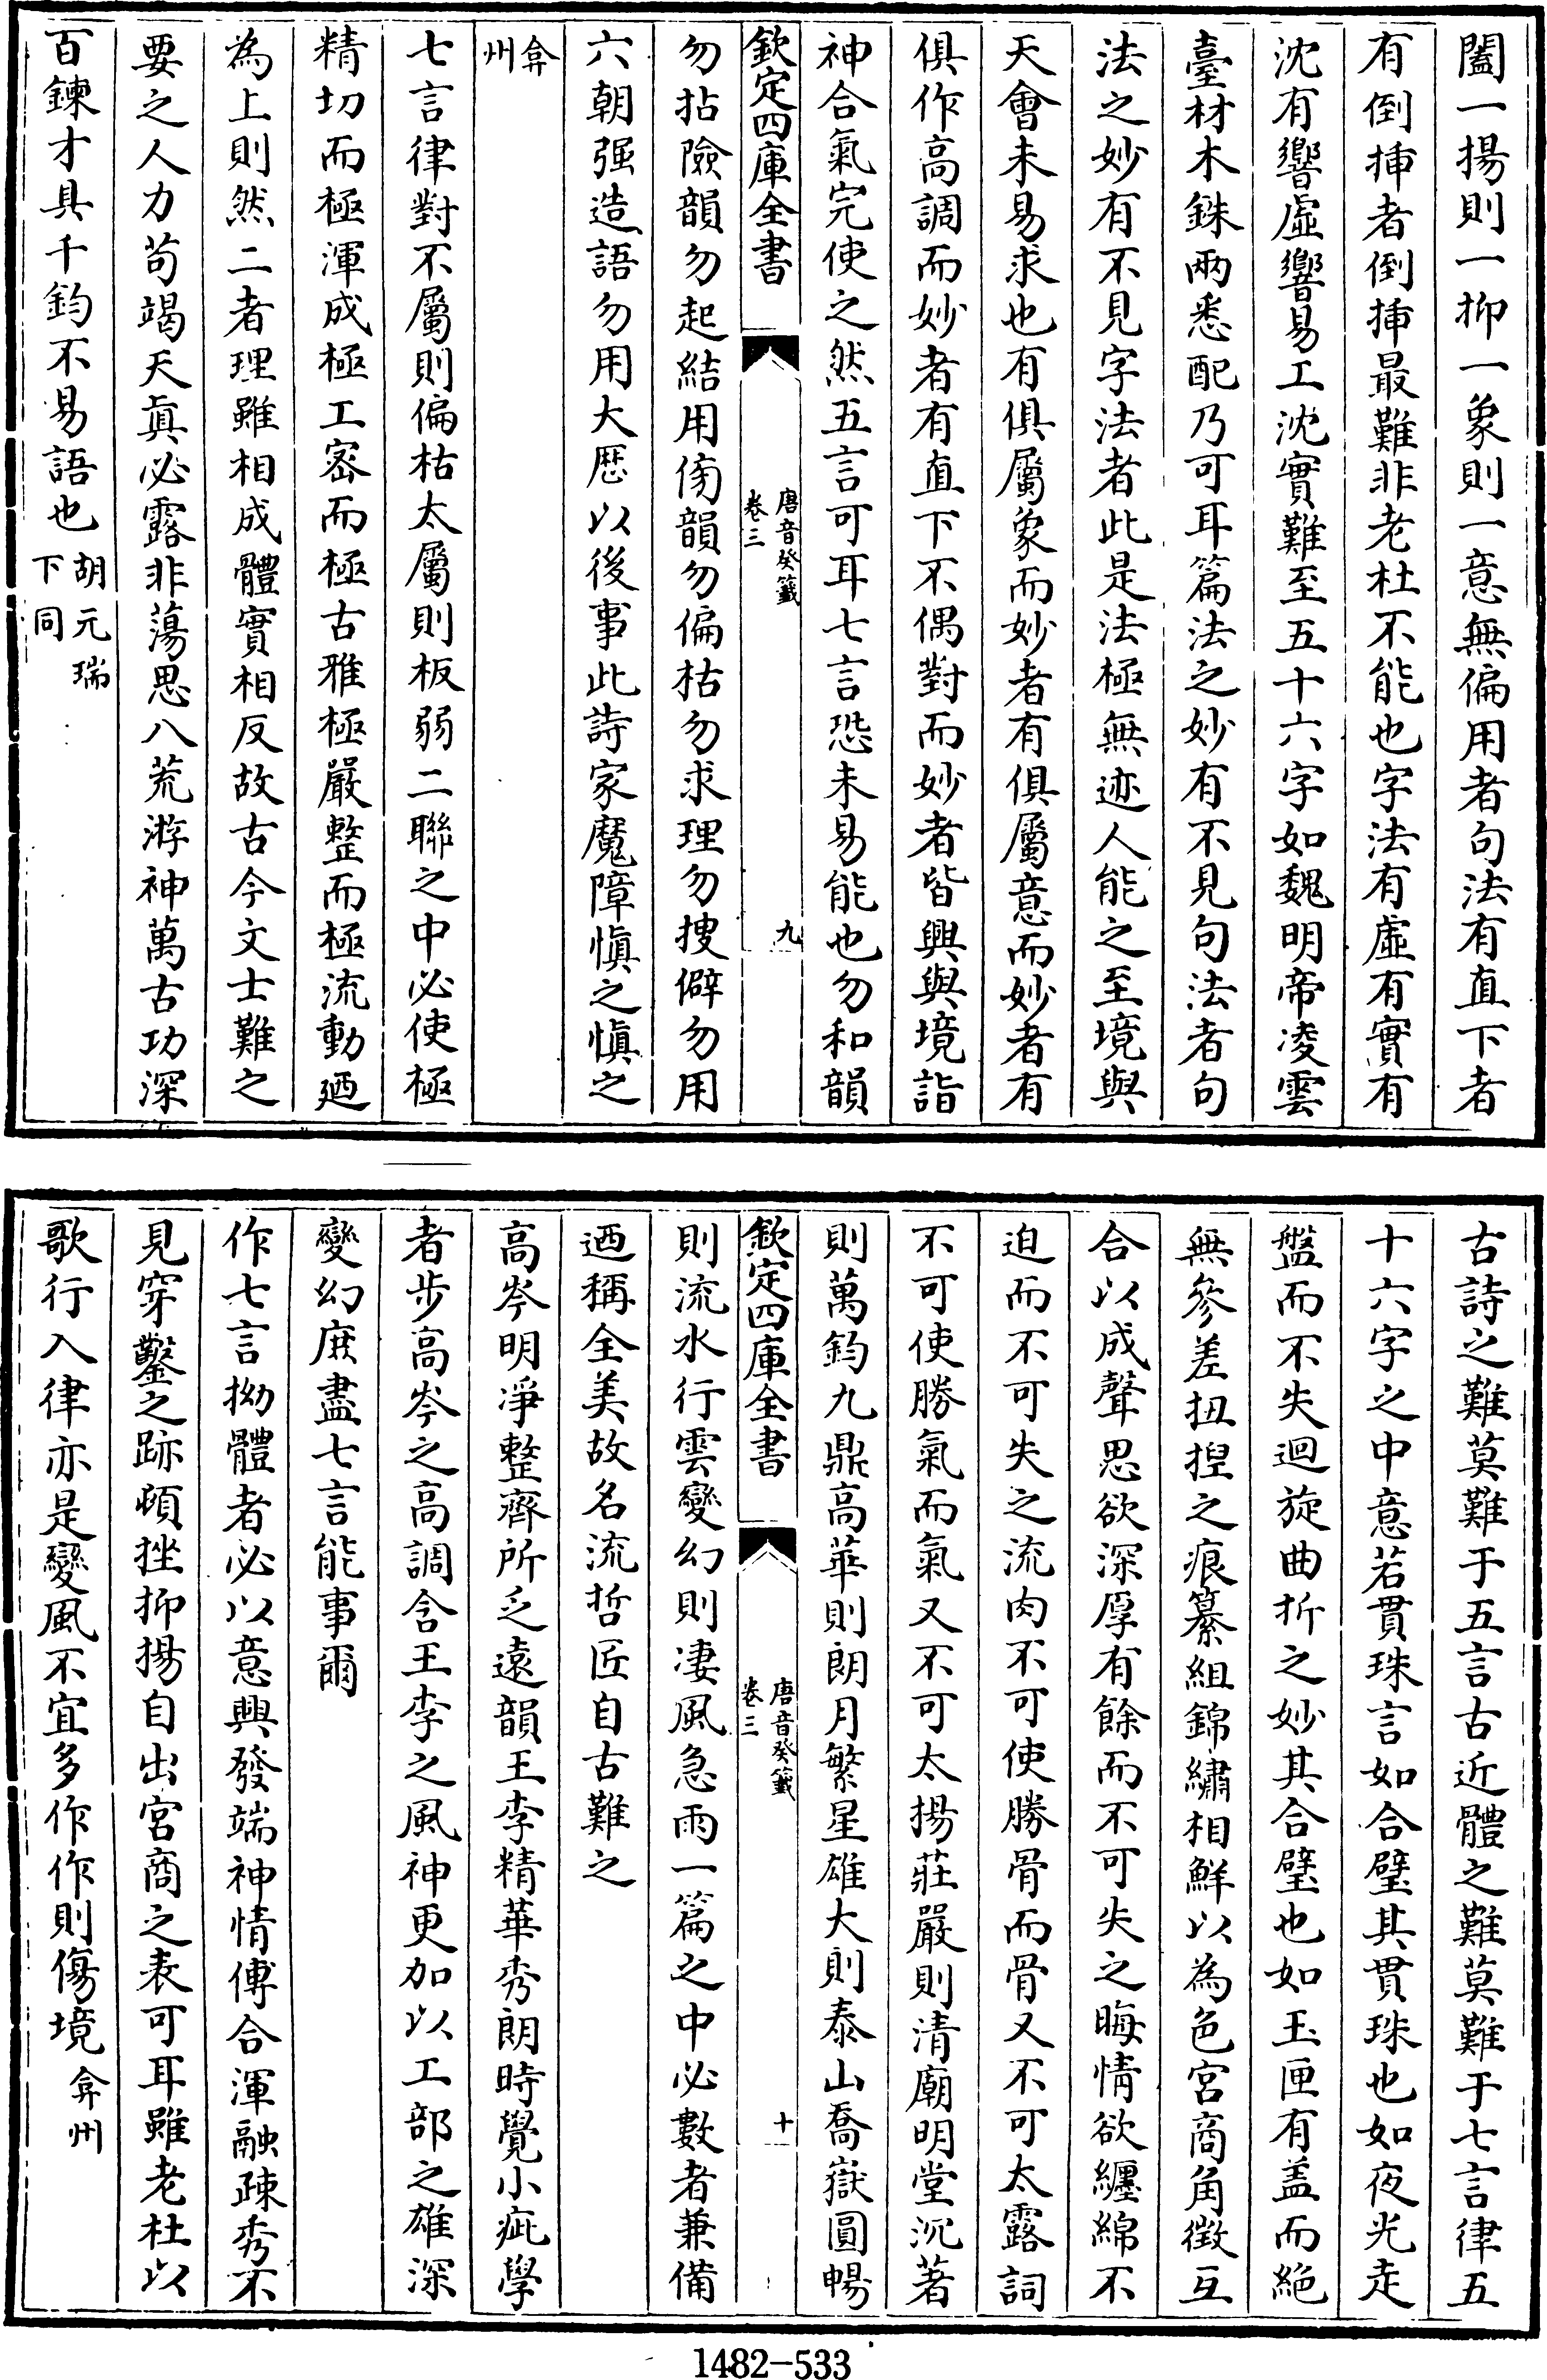 闔一揚則一抑一象則一意無偏用者句法有直下者
有倒揷者倒揷最難非老杜不能也字法有虛有實有
沈有響虛響易工沈實難至五十六字如魏明帝凌雲
臺材木銖兩悉配乃可耳篇法之妙有不見句法者句
法之妙有不見字法者此是法極無迹人能之至境與
天會未易求也有俱屬象而妙者有俱屬意而妙者有
俱作高調而妙者有直下不偶對而妙者皆興與境詣
神合氣完使之然五言可耳七言恐未易能也勿和韻
欽定四庫全書
唐音癸籖
卷三
九
勿拈險韻勿起結用傍韻勿偏枯勿求理勿搜僻勿用
六朝强造語勿用大厯以後事此詩家魔障愼之愼之
弇州
七言律對不屬則偏枯太屬則板弱二聯之中必使極
精切而極渾成極工宻而極古雅極嚴整而極流動廼
為上則然二者理雖相成體實相反故古今文士難之
要之人力苟竭天眞必露非蕩思八荒游神萬古功深
百鍊才具千鈞不易語也胡元瑞
下同
古詩之難莫難于五言古近體之難莫難于七言律五
十六字之中意若貫珠言如合璧其貫珠也如夜光走
盤而不失迴旋曲折之妙其合璧也如玉匣有盖而絕
無參差扭揑之痕纂組錦繡相鮮以為色宮商角徵互
合以成聲思欲深厚有餘而不可失之晦情欲纏綿不
迫而不可失之流肉不可使勝骨而骨又不可太露詞
不可使勝氣而氣又不可太揚莊嚴則清廟明堂沉著
則萬鈞九鼎高華則朗月繁星雄大則泰山喬嶽圓暢
欽定四庫全書
唐音癸籖
卷三
十
則流水行雲變幻則凄風急雨一篇之中必數者兼備
迺稱全美故名流哲匠自古難之
高岑明淨整齊所乏遠韻王李精華秀朗時覺小疵學
者步高岑之高調含王李之風神更加以工部之雄深
變幻庻盡七言能事爾
作七言拗體者必以意興發端神情傅合渾融疎秀不
見穿鑿之跡頓挫抑揚自出宮商之表可耳雖老杜以
歌行入律亦是變風不宜多作作則傷境弇州
1482-533